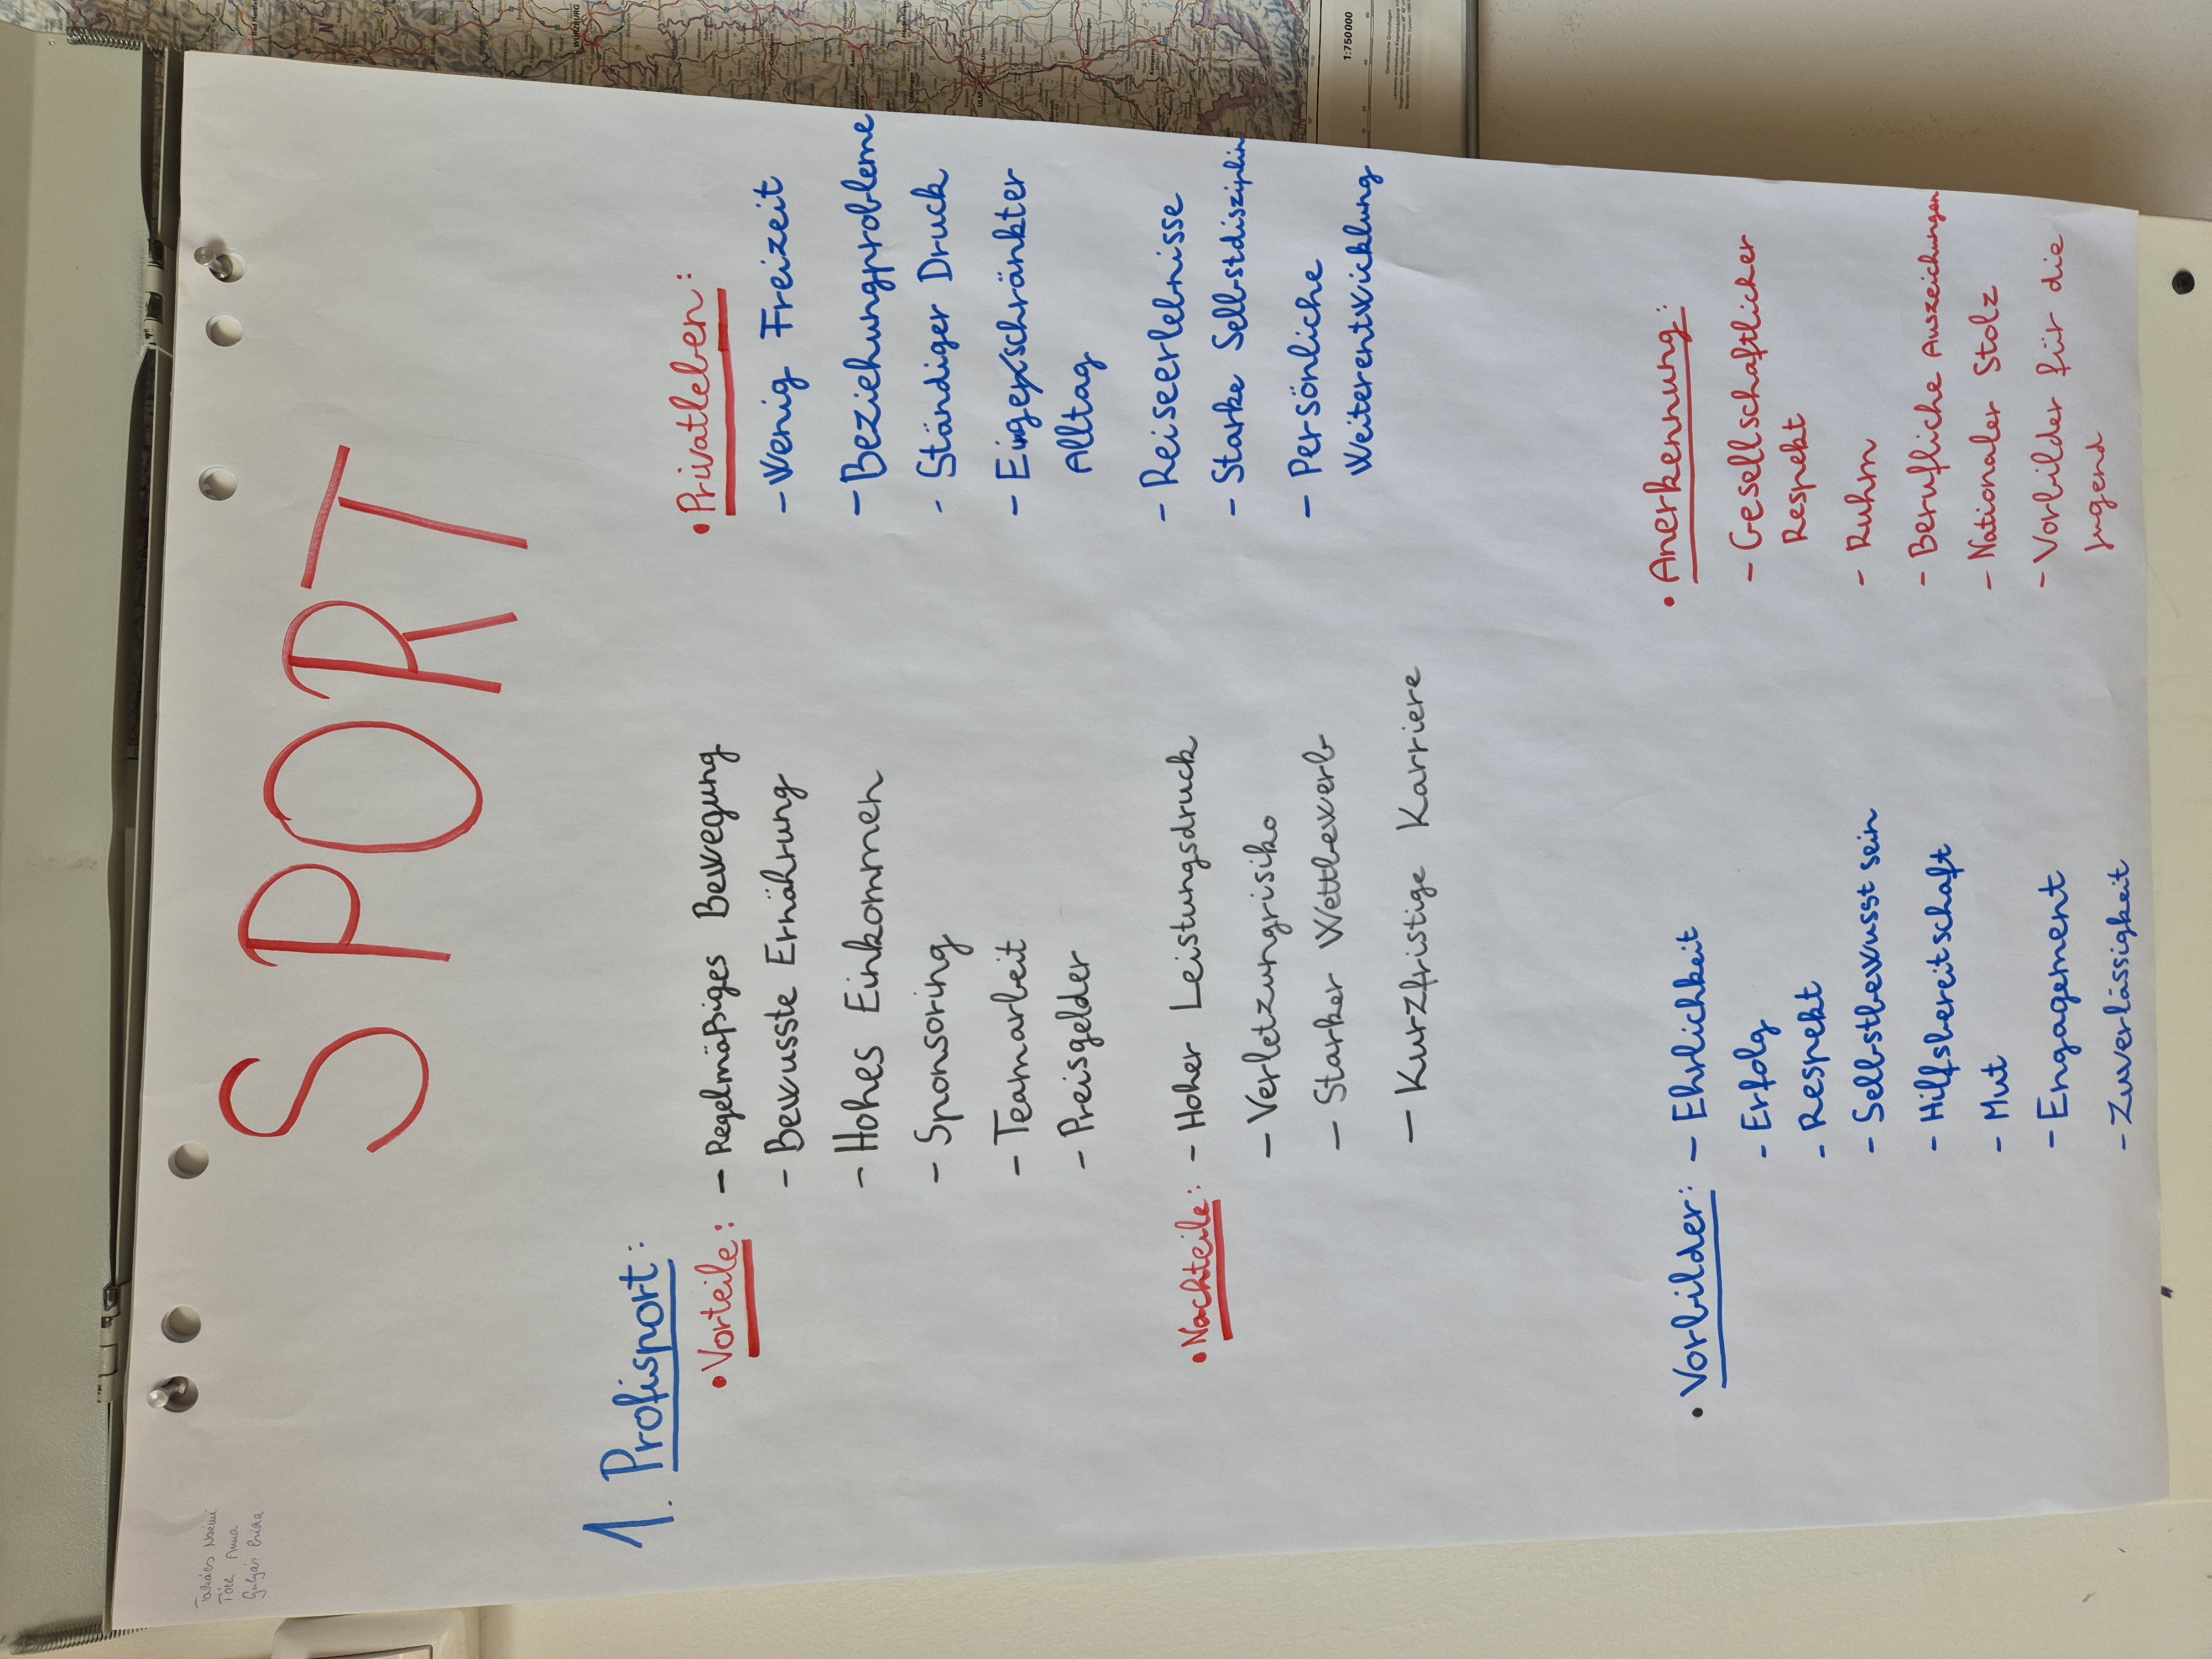 Takács Noémi
Tóth Anna
SPORT
1. Profisport:
• Vorteile:
- Regelmäßiges Bewegung
- Bewusste Ernährung
- Hohes Einkommen
- Sponsoring
- Teamarbeit
- Preisgelder
• Nachteile:
- Hoher Leistungsdruck
- Verletzungrisiko
- Starker Wettbewerb
- Kurzfristige Karriere
• Privatleben:
- Wenig Freizeit
- Beziehungprobleme
- Ständiger Druck
- Eingeschränkter
Alltag
- Reiseerlebnisse
- Starke Selbstdisziplin
- Persönliche
Weiterentwicklung
• Vorbilder:
- Ehrlichkeit
- Erfolg
- Respekt
- Selbstbewusst sein
- Hilfsbereitschaft
- Mut
- Engagement
- Zuverlässigkeit
• Anerkennung:
- Gesellschaftlicher
Respekt
- Ruhm
- Berufliche Auszeichungen
- Nationaler Stolz
- Vorbilder für die
Jugend
WÜRZBURG
ULM
1:750000